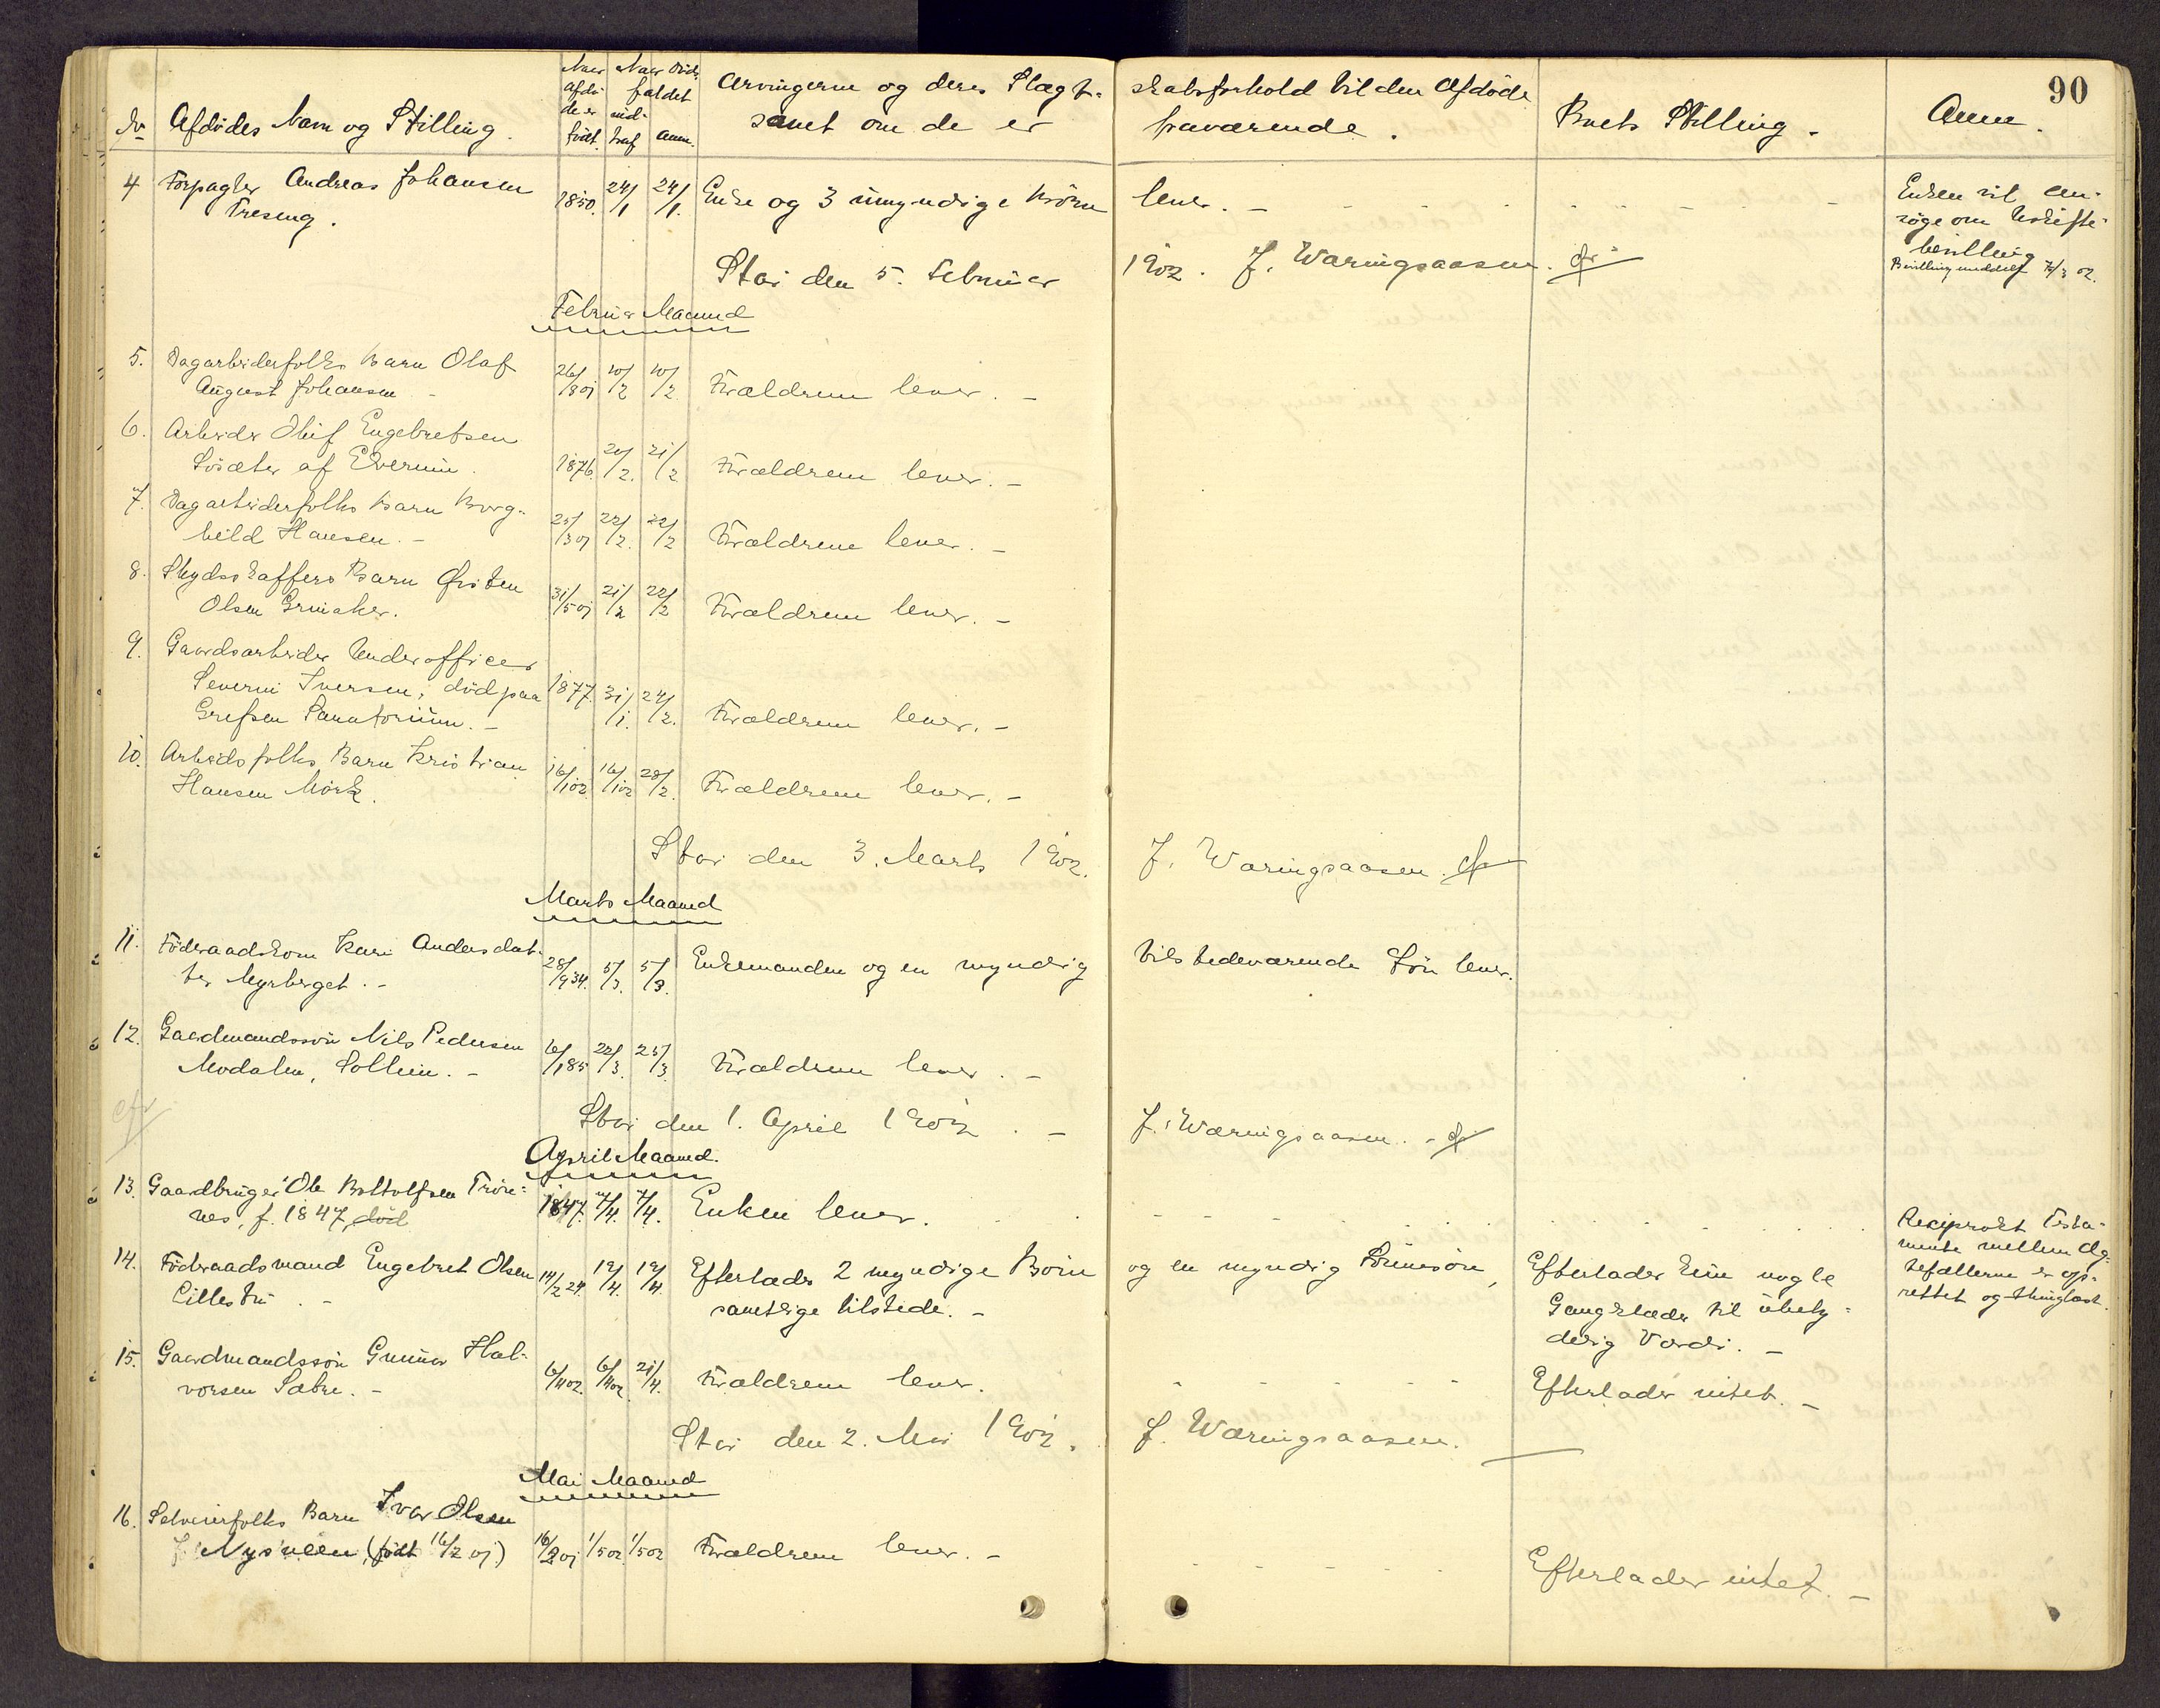 90
No Afdødes Navn og Stilling.
Naar Afdøde er født.
Naar Døds-faldet ind-traf anm.
Arvingerne og deres Slægt-skabsforhold til den Afdøde
samt om de er fraværende.
Boets Stilling.
Anm.
4 Forpagter Andreas Johansen 1850. 24/1 24/1. Enke og 3 umyndige Børn lever. -
Treseng.
Enken vil an-
søge om Uskifte-
bevilling
Bevilling meddelt 7/3 02.
Stai den 5. Februar 1902. J. Wæringsaasen.
Februar Maaned
5. Dagarbeiderfolks Barn Olaf
August Johansen - 26/8 01 10/2 10/2 Forældrene lever. -
6. Arbeider Oluf Engebretsen
Svisæter af Elverum. 1876. 20/2. 21/2 Forældrene lever. -
7. Dagarbeiderfolks Barn Borg-
hild Hansen. - 25/3 01 22/2. 22/2 Forældrene lever. -
8. Skydsskaffers Barn Østen
Olsen Grinaker. 31/5 01 21/2 22/2 Forældrene lever. -
9. Gaardsarbeider Underofficer
Severin Iversen, død paa 1877. 31/1. 24/2. Forældrene lever. -
Grefsen Sanatorium. -
10. Arbeidsfolks Barn Kristian
Hansen Mørk. 16/1 02 16/1 02 28/2. Forældrene lever. -
Stai den 3. Marts 1902. J. Wæringsaasen.
Marts Maaned
11. Föderaadskone Kari Andersdat-
ter Myrberget. - 28/9 34. 5/3. 5/3. Enkemanden og en myndig tilstedeværende Søn lever.
12. Gaardmandssøn Nils Pedersen
Modalen, Sollien. - 6/1 85 22/3. 25/3. Forældrene lever. -
Stai den 1. April 1902. - J. Wæringsaasen. -
April Maaned.
13. Gaardbruger Ole Bottolfsen Trøn-
nes, f. 1847, død 1847. 7/4. 7/4. Enken lever.
Reciprokt Testa-
mente mellem Æg-
tefællerne er op-
rettet og thinglæst.
14. Föderaadsmand Engebret Olsen 14/2 24. 12/4. 12/4. Efterlader 2 myndige Börn og en myndig Sönnesön,
Lillestu. - samtlige tilstede. -
Efterlader kun nogle
Gangklæder til ubety-
delig Værdi. -
15. Gaardmandssøn Gunnar Hal-
vorsen Sætre. - 6/4 02. 6/4 02. 21/4. Forældrene lever. Efterlader intet. -
Stai den 2. Mai 1902. J. Wæringsaasen.
Mai Maaned
16. Selveierfolks Barn Ivar Olsen
Nysveen, (født 16/2 01) 16/2 01 1/5 02 1/5 02 Forældrene lever. - Efterlader intet. -